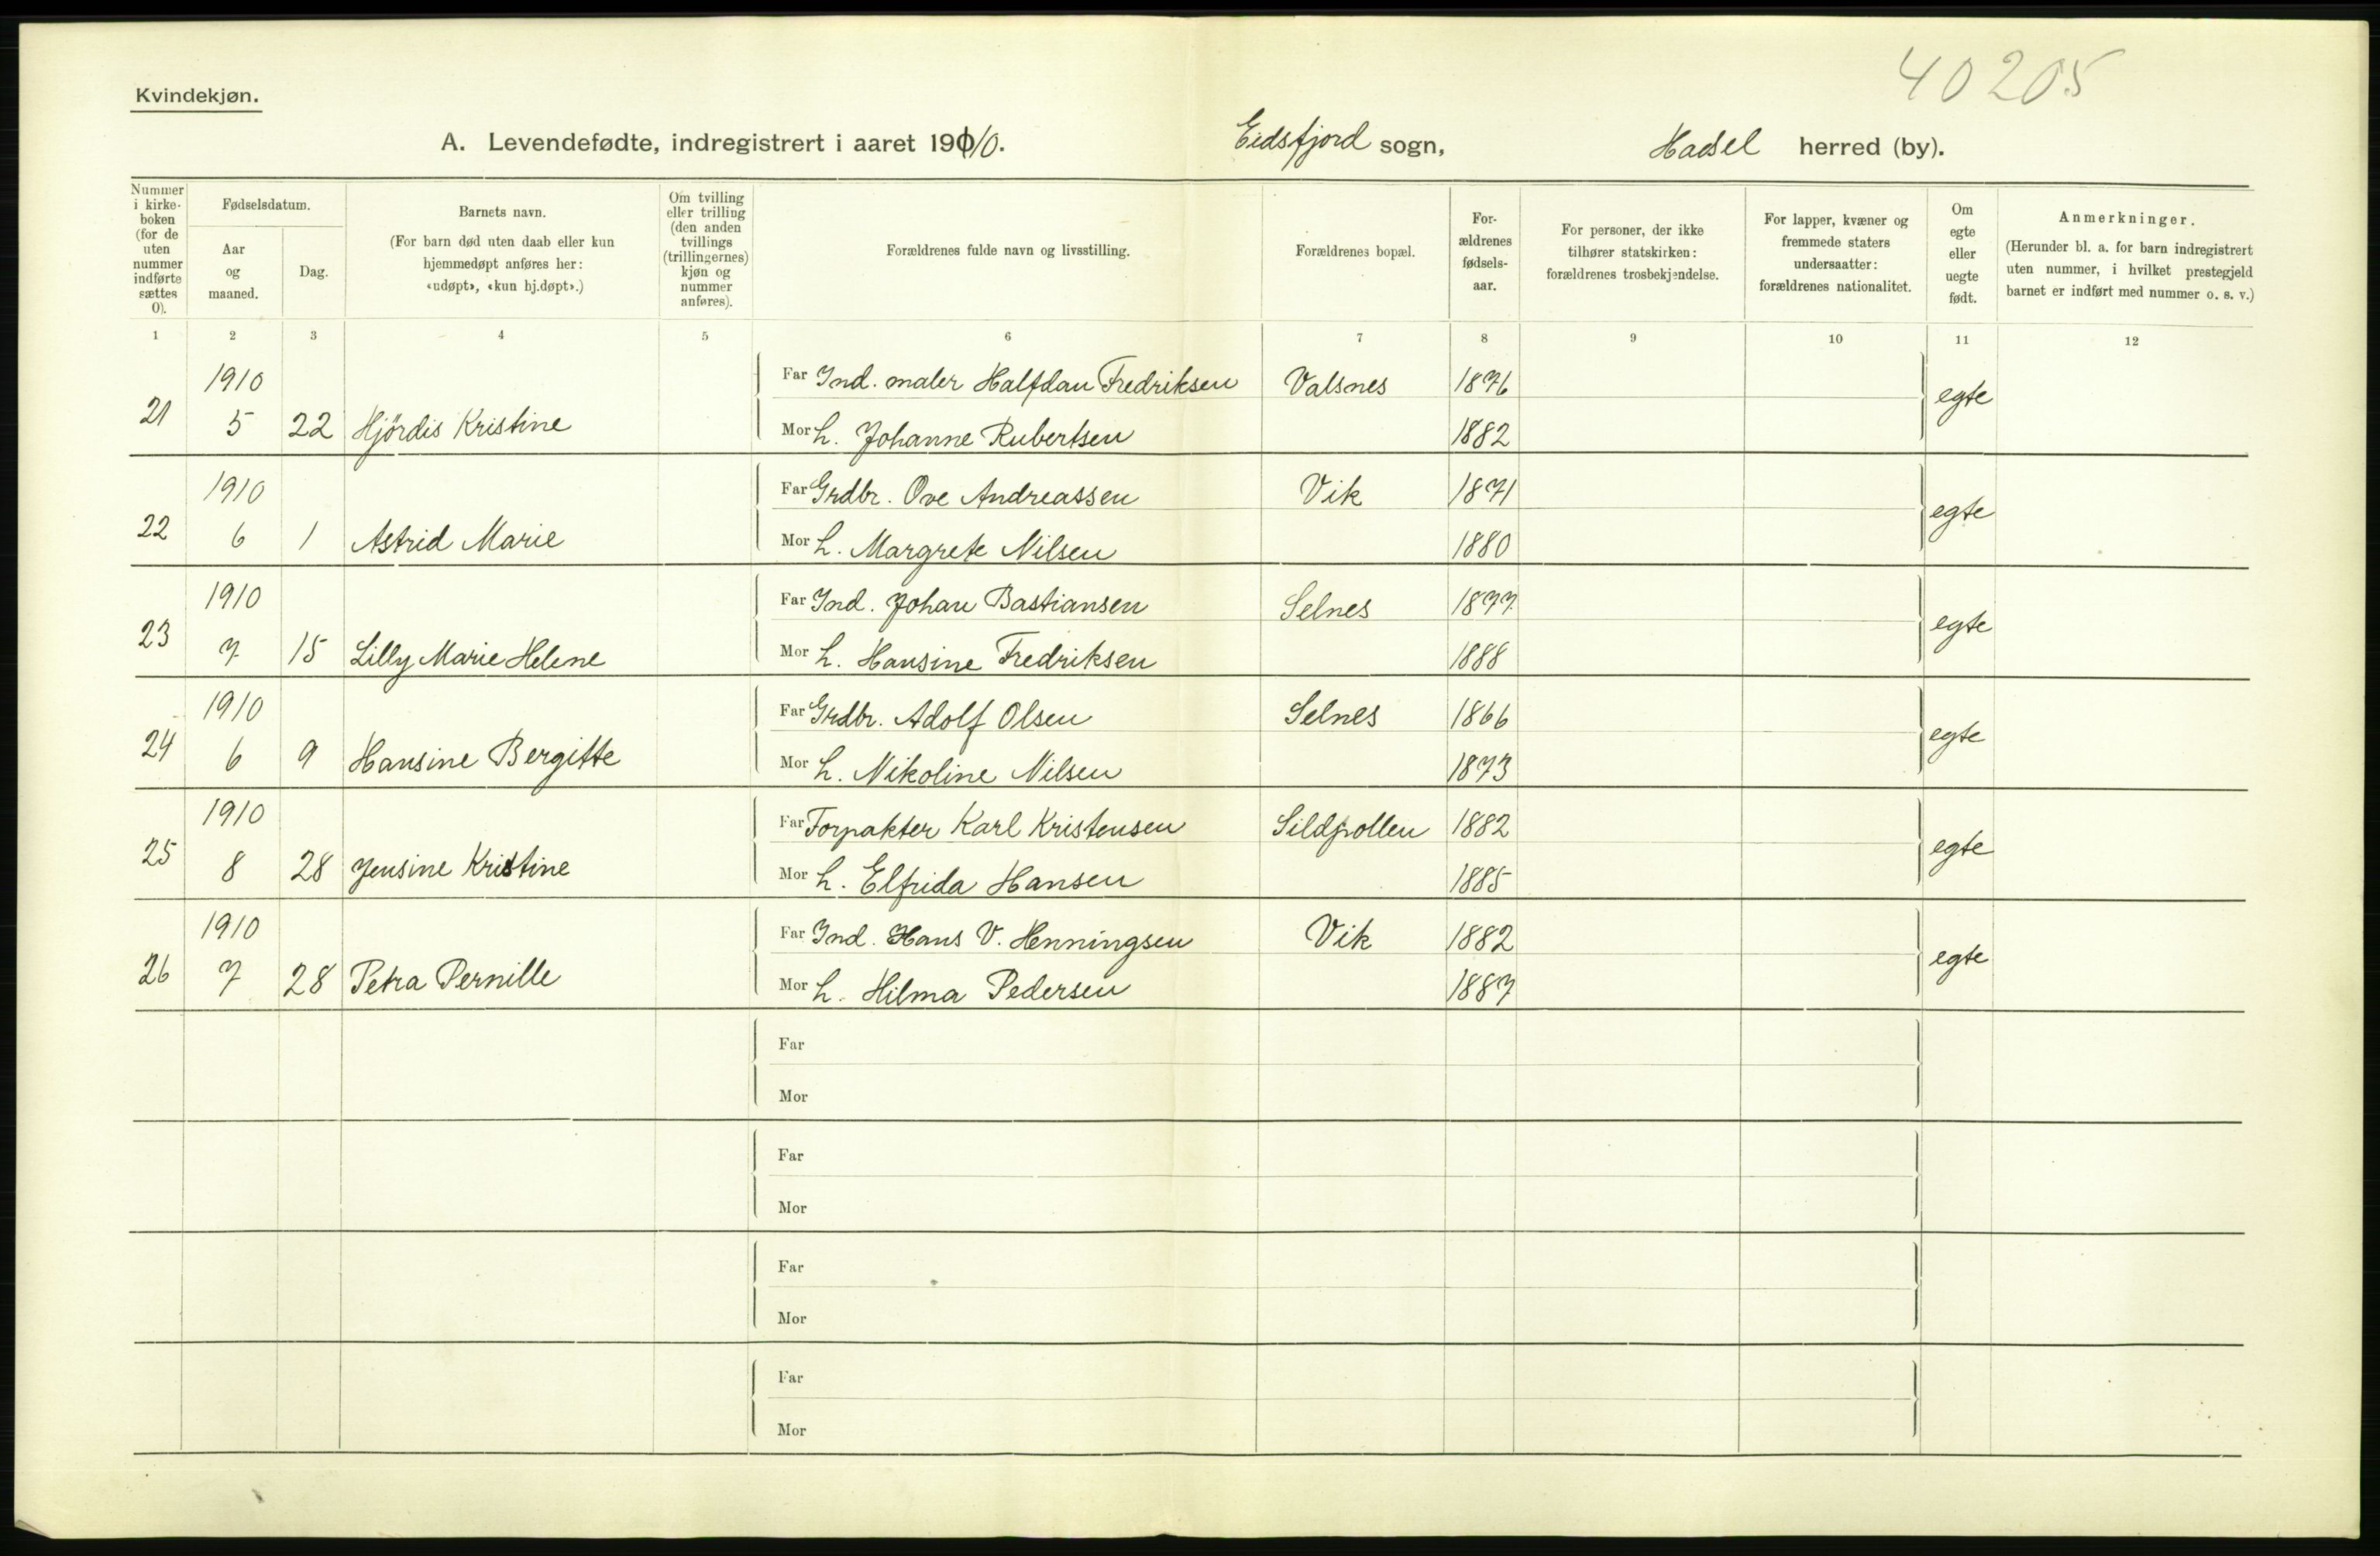 40205
Kvindekjøn.
A. Levendefødte, indregistrert i aaret 1910. Eidsfjord sogn, Hadsel herred (by).
Nummer i kirkeboken (for de uten nummer indførte sættes 0).
Fødselsdatum.
Aar og maaned.
Dag.
Barnets navn.
(For barn død uten daab eller kun hjemmedøpt anføres her: «udøpt», «kun hj.døpt».)
Om tvilling eller trilling (den anden tvillings (trillingernes) kjøn og nummer anføres).
Forældrenes fulde navn og livsstilling.
Forældrenes bopæl.
Forældrenes fødselsaar.
For personer, der ikke tilhører statskirken: forældrenes trosbekjendelse.
For lapper, kvæner og fremmede staters undersaatter: forældrenes nationalitet.
Om egte eller uegte født.
Anmerkninger.
(Herunder bl. a. for barn indregistrert uten nummer, i hvilket prestegjeld barnet er indført med nummer o. s. v.)
1 2 3 4 5 6 7 8 9 10 11 12
1910 Far Ind. maler Halfdan Fredriksen Valsnes 1876 egte
21 5 22 Hjördis Kristine Mor h. Johanne Rubertsen 1882
1910 Far Grdbr. Ove Andreassen Vik 1871 egte
22 6 1 Astrid Marie Mor h. Margrete Nilsen 1880
1910 Far Ind. Johan Bastiansen Selnes 1877 egte
23 7 15 Lilly Marie Helene Mor h. Hansine Fredriksen 1888
1910 Far Grdbr. Adolf Olsen Selnes 1866 egte
24 6 9 Hansine Bergitte Mor h. Nikoline Nilsen 1873
1910 Far Forpakter Karl Kristensen Sildpollen 1882 egte
25 8 28 Jensine Kristine Mor h. Elfrida Hansen 1885
1910 Far Ind. Hans V. Henningsen Vik 1882 egte
26 7 28 Petra Pernille Mor h. Hilma Pedersen 1887
Far
Mor
Far
Mor
Far
Mor
Far
Mor